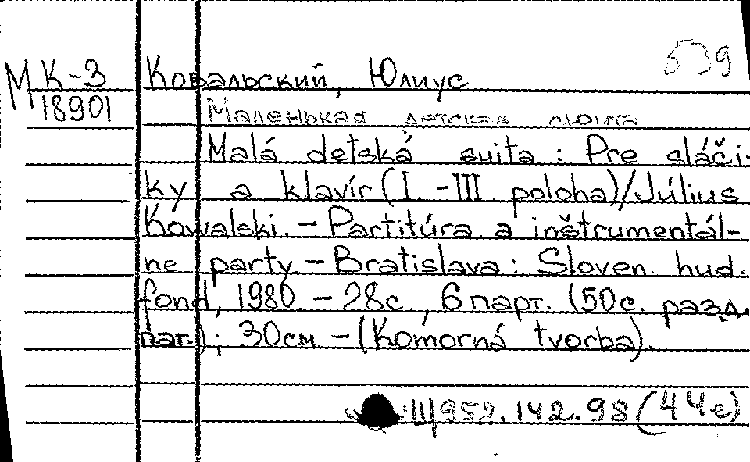 539
М К-3 Ковальский, Юлиус
18901 Маленькая детская сюита
Malá detská suita : Pre sláči-
ky a klavír (I -III poloha)/Július
Kowalski. - Partitúra a inštrumentál-
ne party - Bratislava : Sloven. hud.
fond, 1980 - 28с., 6 парт. (50с. разд.
паг.); 30см - (Komorná tvorba).
Ш959.142.98 (44е)